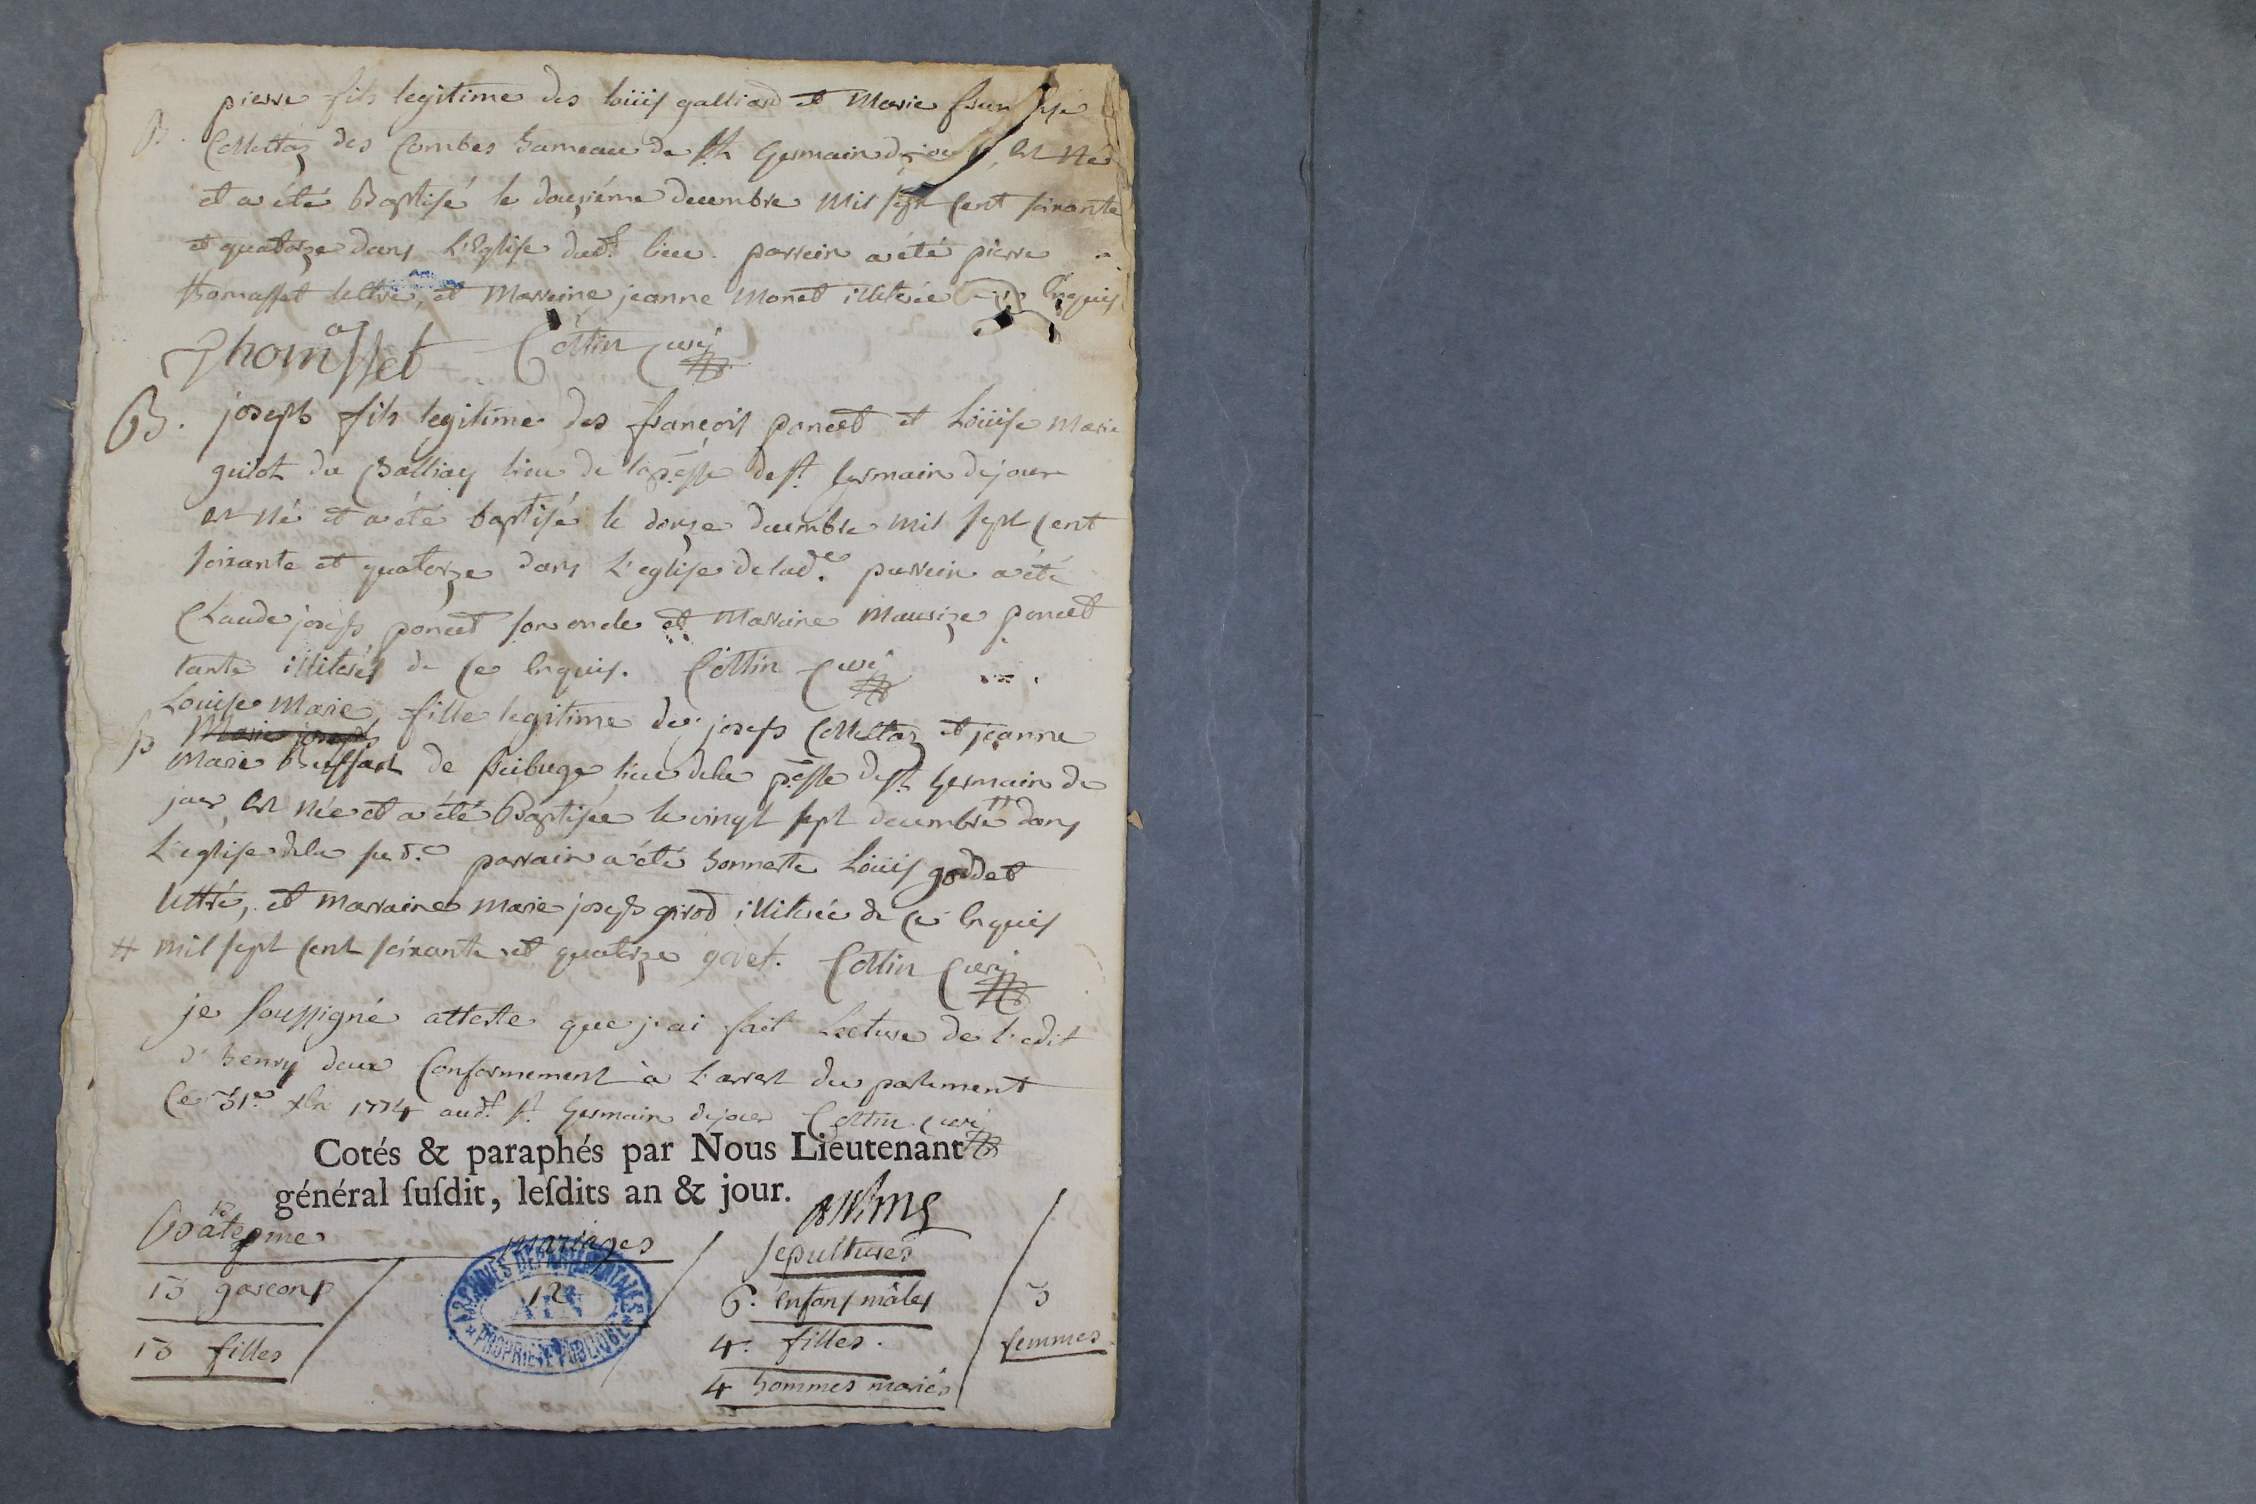 B. pierre fils legitime des loüis galliard et Marie franҫoise
Collettaz des Combes hameau de st Germain dejoux, est né
et a été Baptisé le douziéme decembre mil sept cent soixante
et quatorze dans L'Eglise dudt lieu. parrein a été pierre
thomasset lettré, et Marreine jeanne Monet illiterée enquis
Thomasset Cottin Curé
B. joseph fils legitime des françois poncet et Loüise Marie
guilot du Balliay lieu de la p.esse de st. Germain dejoux
est né et a été baptisé le douze decembre mil sept cent
soixante et quatorze dans L'eglise de lad.e parrein a été
Claude joseph poncet son oncle et Marraine Maurize poncet
tante illiterés de ce enquis. Cottin Curé
Louise Marie fille legitime de joseph Collettaz et jeanne
B Marie joseph
Marie Buffard de lieu dela p.esse de st Germain de
joux, est née et a été Baptisée le vingt sept decembre # dans
L'eglise dela susd.e parrain a été honneste Loüis goddet
lettré, et marraine marie joseph girod illiterée de ce enquis
# mil sept cent soixante et quatorze godet. Cottin Curé
je soussigné atteste que j'ai fait Lecture de l'edit
d'henry deux Conformement à L'arrest du parlement
Ce 31e xbre 1774 audt st Germain dejoux Cottin curé
Cotés & paraphés par Nous Lieutenant
général ſuſdit, leſdits an & jour.
Batême mariages sepultures
13 garcons 12 6. enfans mâles 3
13 filles 4. filles. femmes
4 hommes mariés
ARCHIVES DEPARTEMENTALES
AIN
PROPRIETE PUBLIQUE